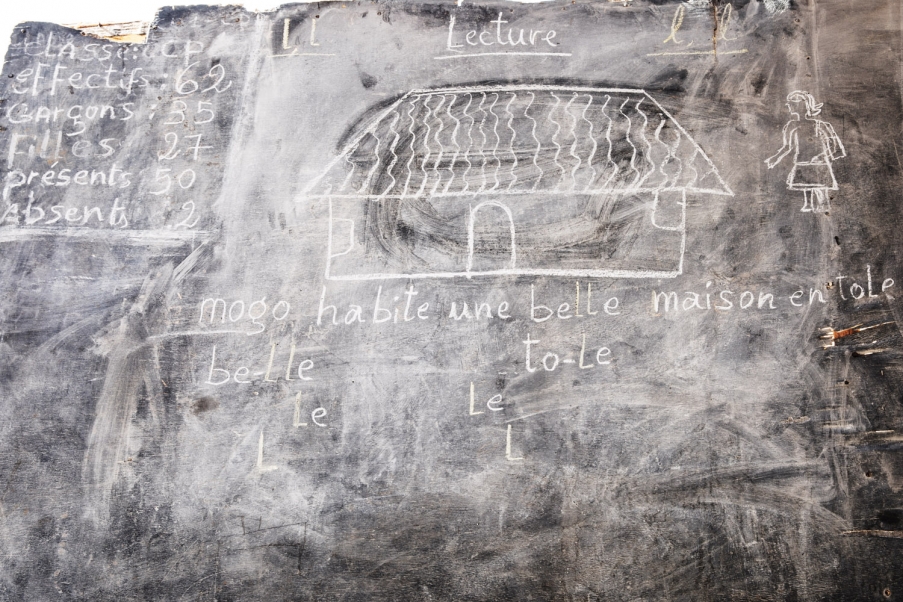 Classe: CP
effectifs: 62
Garçons: 35
Filles 27
présents 50
Absents 2
l, l Lecture l, l
mogo habite une belle maison en tole
be-lle to-le
le le
l l